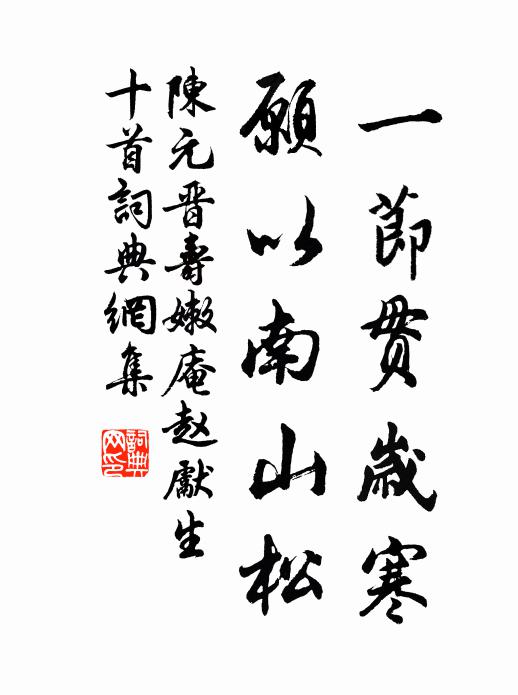 一節貫歲寒
願以南山松
陳元晋壽嫩庵趙獻生
十首詞典網集
詞典
網印